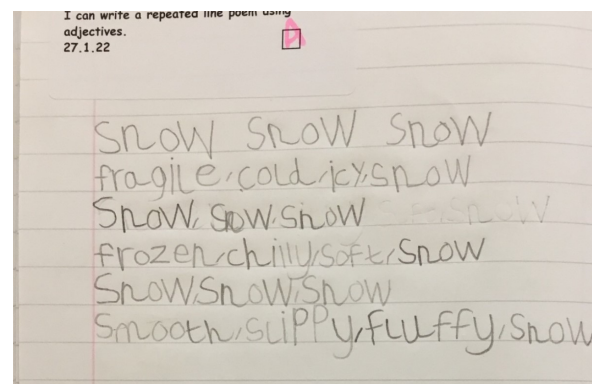 I can write a repeated line poem using
adjectives.
27.1.22
Snow Snow Snow
fragile, cold, icy, snow
Snow, sow, snow
frozen, chilly, soft, Snow
Snow, Snow, Snow
Smooth, slippy, fluffy, Snow